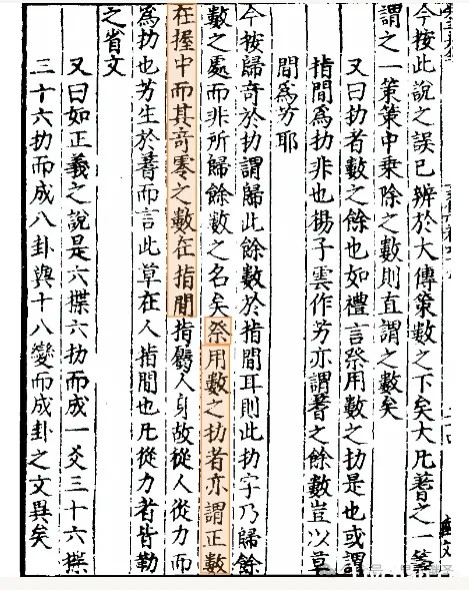 今按此說之誤已辨於大傳策數之下矣大凡蓍之一籌
謂之一策策中乗除之數則直謂之數矣
又曰扐者數之餘也如禮言祭用數之扐是也或謂
指間爲扐非也揚子雲作艻亦謂蓍之餘數豈以草
間爲艻耶
今按歸奇於扐謂歸此餘數於指間耳則此扐字乃歸餘
數之處而非所歸餘數之名矣祭用數之扐者亦謂正數
在握中而其奇零之數在指間指屬人身故從人從力而
爲扐也艻生於蓍而言此草在人指間也凡從力者皆勒
之省文
又曰如正義之說是六揲六扐而成一爻三十六揲
三十六扐而成八卦與十八變而成卦之文異矣